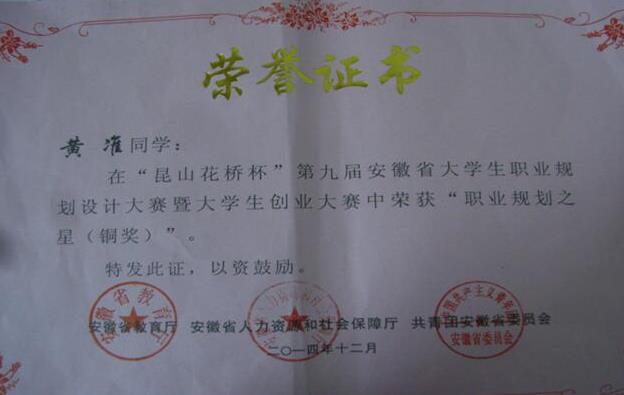 荣誉证书
黄准同学：
在“昆山花桥杯”第九届安徽省大学生职业规
划设计大赛暨大学生创业大赛中荣获“职业规划之
星（铜奖）”。
特发此证，以资鼓励。
安徽省教育厅 安徽省人力资源和社会保障厅 共青团安徽省委员会
二〇一四年十二月
安徽省教育厅
安徽省委员会